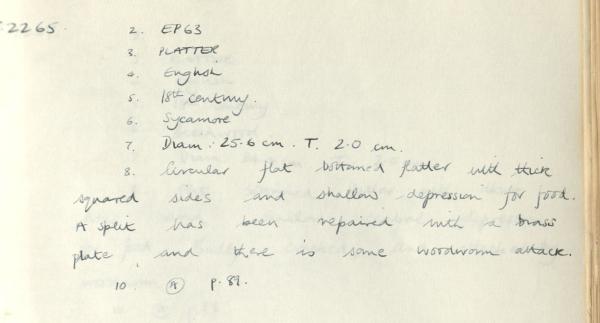 2265. 2. EP63
3. PLATTER
4. English
5. 18th century.
6. Sycamore
7. Diam: 25.6 cm. T. 2.0 cm.
8. Circular flat bottomed platter with thick
squared sides and shallow depression for food.
A split has been repaired with a brass
plate, and there is some wordworm attack.
10. Ⓐ p. 89.